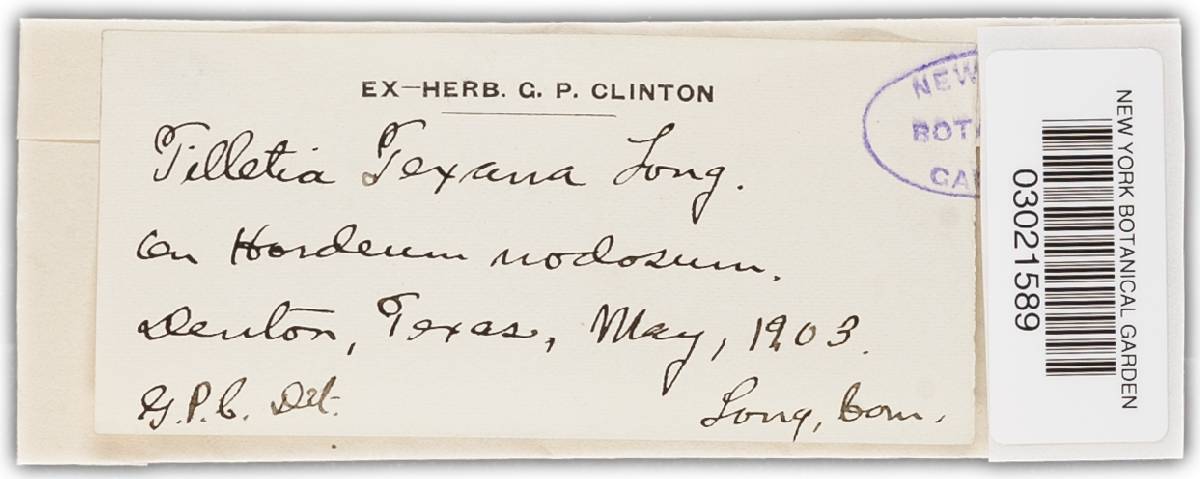 EX-HERB. G. P. CLINTON
Tilletia Texana Long.
on Hordeum nodosum.
Denton, Texas, May, 1903.
G.P.C. Det.
Long, Com.
NEW
BOT
GA
NEW YORK BOTANICAL GARDEN
03021589